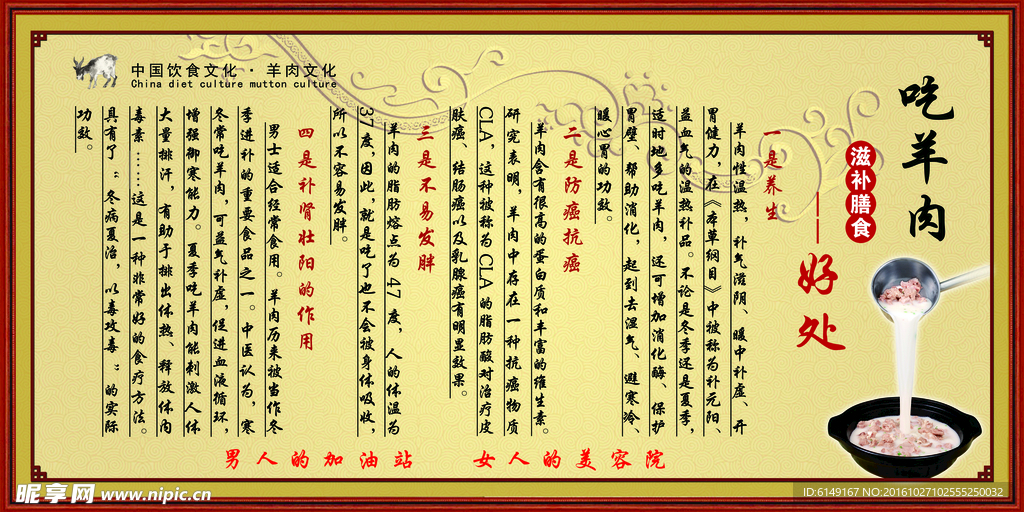 中国饮食文化·羊肉文化
China diet culture mutton culture
吃羊肉
滋补膳食
——好处
一是养生
羊肉性温热，补气滋阴、暖中补虚、开
胃健力，在《本草纲目》中被称为补元阳、
益血气的温热补品。不论是冬季还是夏季，
适时地多吃羊肉，还可增加消化酶、保护
胃壁、帮助消化，起到去湿气、避寒冷、
暖心胃的功效。
二是防癌抗癌
羊肉含有很高的蛋白质和丰富的维生素。
研究表明，羊肉中存在一种抗癌物质
CLA，这种被称为CLA的脂肪酸对治疗皮
肤癌、结肠癌以及乳腺癌有明显效果。
三是不易发胖
羊肉的脂肪熔点为47度，人的体温为
37度，因此，就是吃了也不会被身体吸收，
所以不容易发胖。
四是补肾壮阳的作用
男士适合经常食用。羊肉历来被当作冬
季进补的重要食品之一。中医认为，寒
冬常吃羊肉，可益气补虚，促进血液循环，
增强御寒能力。夏季吃羊肉能刺激人体
大量排汗，有助于排出体热、释放体内
毒素……这是一种非常好的食疗方法。
具有了“冬病夏治，以毒攻毒”的实际
功效。
男人的加油站 女人的美容院
昵享网 www.nipic.cn
ID:6149167 NO:20161027102555250032